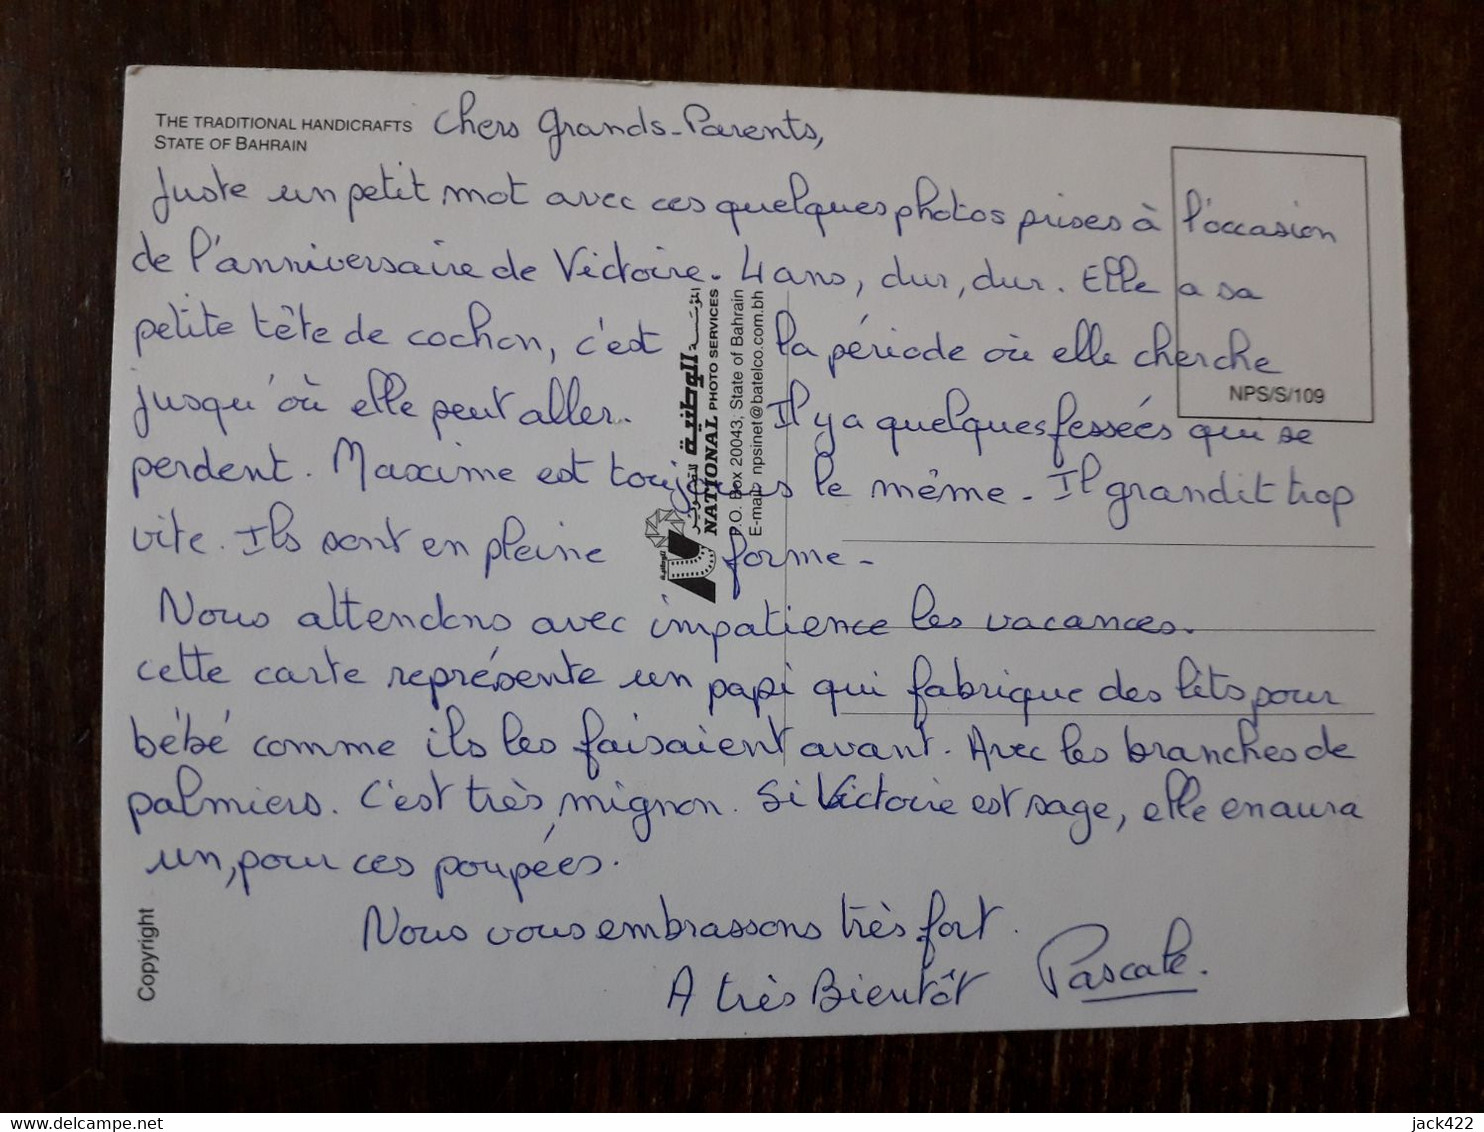 THE TRADITIONAL HANDICRAFTS
STATE OF BAHRAIN
Chers Grands-Parents,
Juste un petit mot avec ces quelques photos prises à l'occasion
de l'anniversaire de Victoire. 4 ans, dur, dur. Elle a sa
petite tête de cochon, c'est la période où elle cherche
jusqu'où elle peut aller. Il y a quelques fessées qui se
perdent. Maxime est toujours le même. Il grandit trop
vite. Ils sont en pleine forme.
Nous attendons avec impatience les vacances.
Cette carte représente un papi qui fabrique des lits pour
bébé comme ils les faisaient avant. Avec les branches de
palmiers. C'est très mignon. Si Victoire est sage, elle en aura
un, pour ces poupées.
Nous vous embrassons très fort.
A très Bientôt Pascale.
NPS/S/109
الوطنية للتصوير
NATIONAL PHOTO SERVICES
P.O. Box 20043, State of Bahrain
E-mail: npsinet@batelco.com.bh
Copyright
delcampe.net
jack422